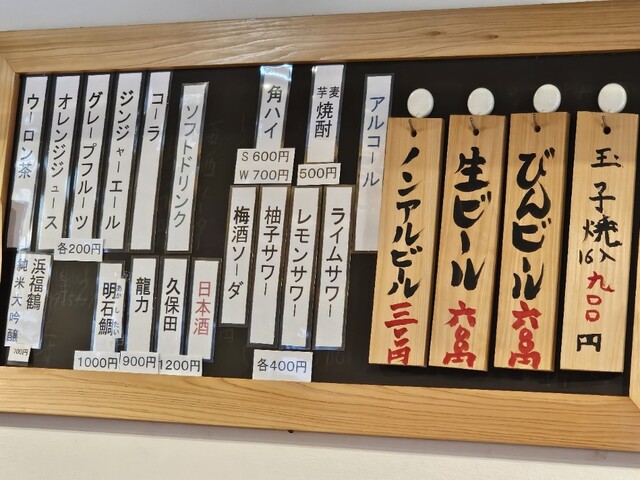 玉子焼
16入
九〇〇円
びんビール
生ビール
ノンアルビール
アルコール
麦
芋
焼酎
500円
角ハイ
S 600円
W 700円
ライムサワー
レモンサワー
柚子サワー
梅酒ソーダ
各400円
ソフトドリンク
コーラ
ジンジャーエール
グレープフルーツ
オレンジジュース
ウーロン茶
各200円
日本酒
久保田
1200円
龍力
900円
明石鯛
あかしたい
1000円
浜福鶴
純米大吟醸